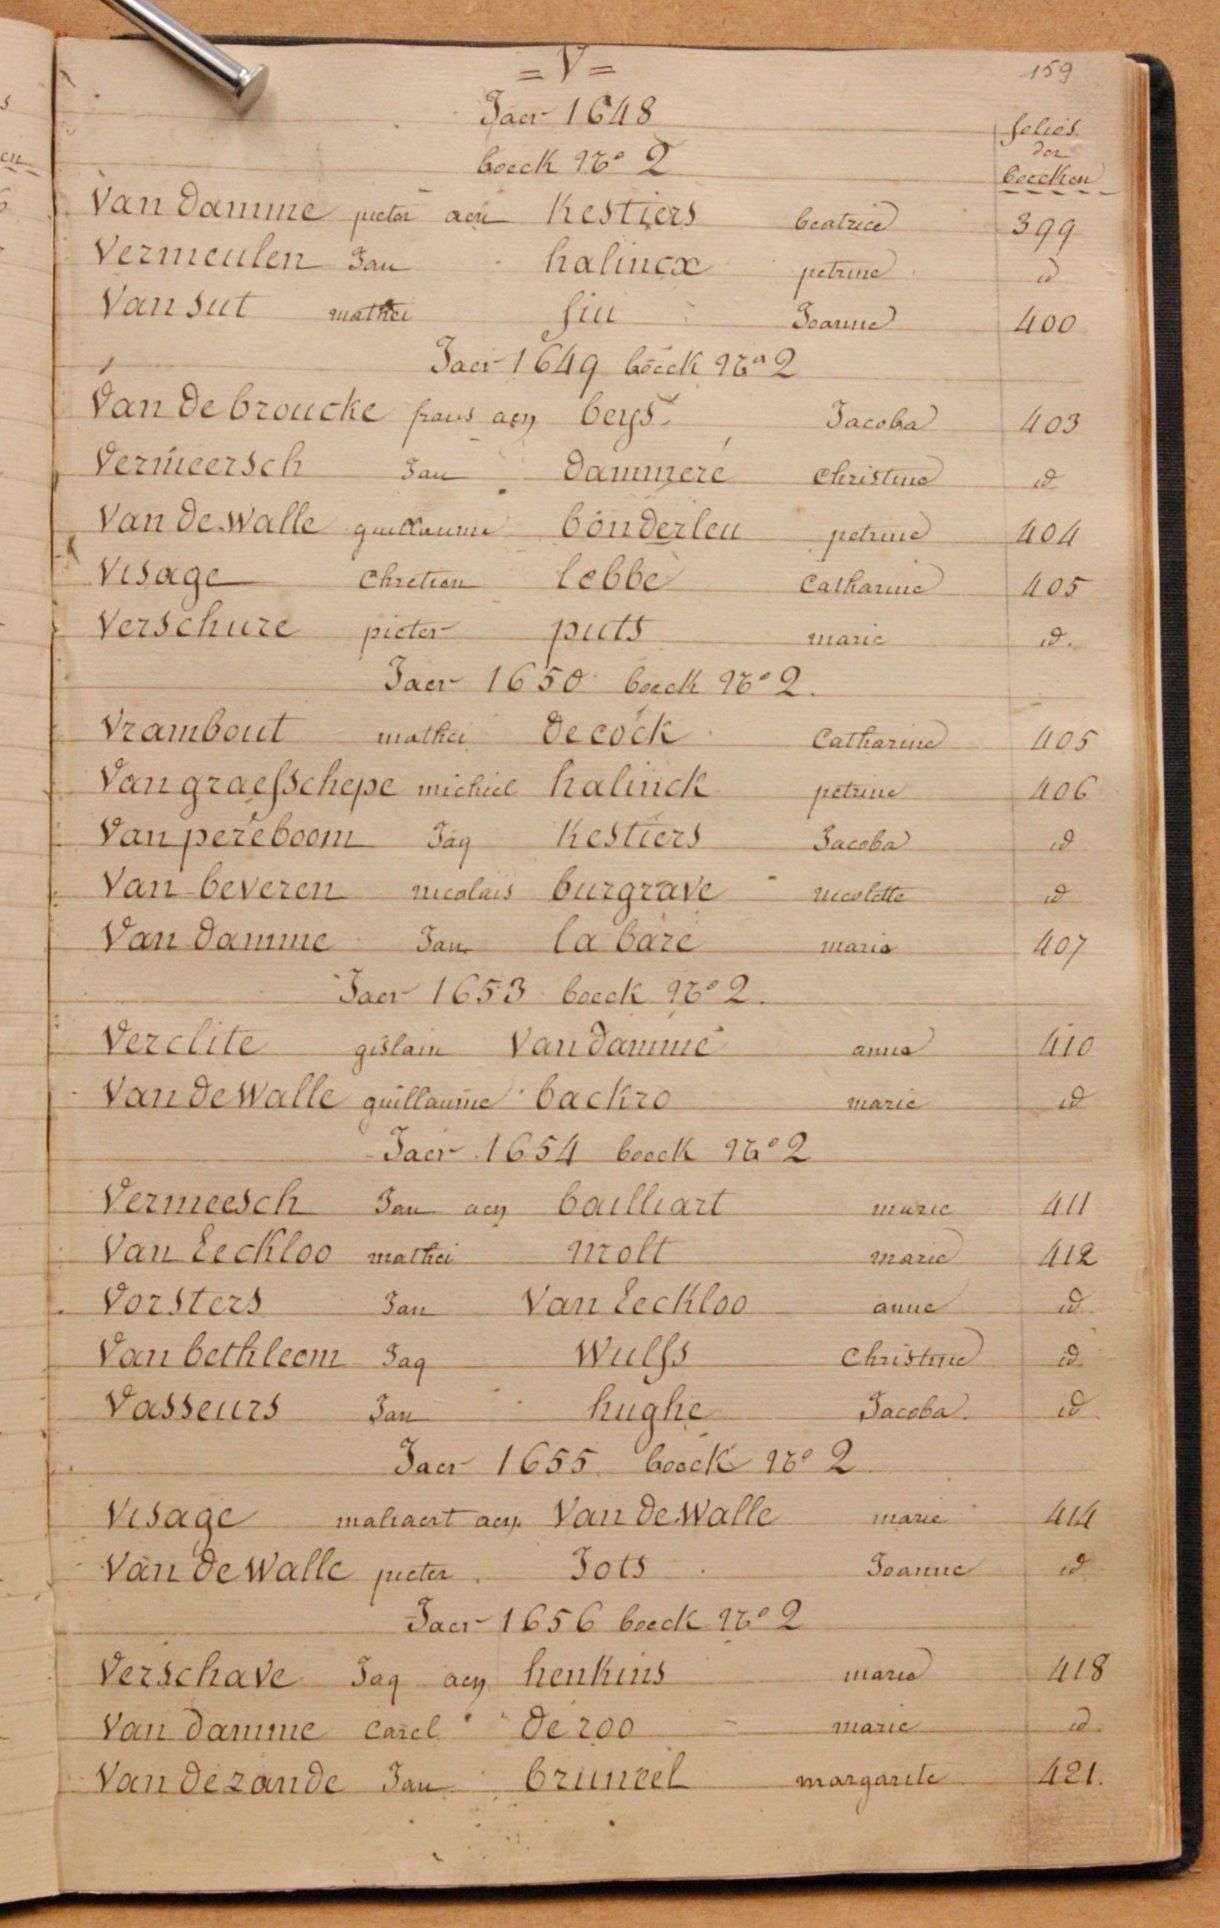 = V =
159
Jaer 1648
folios
der
boecken
boeck No 2
Van Damme pieter aen Kestiers beatrice 399
Vermeulen Jan halincx petrine id
Van sut mathei fiu Joanne 400
Jaer 1649 boeck No 2
Van De broucke frans aen beys Jacoba 403
Vermeersch Jan Dammere Christine id
Van De Walle guillaume bonderleu petrine 404
Visage Chretien lebbe Catharine 405
Verschure pieter puts marie id.
Jaer 1650 boeck No 2.
Vrambout mathei De cock Catharine 405
Van graefschepe michiel halinck petrine 406
Van pereboom Jaq Kestiers Jacoba id
Van beveren nicolais burgrave nicolette id
Van Damme Jan la bare marie 407
Jaer 1653 boeck No 2.
Verclite gislain Van Damme anna 410
Van De Walle guillaume backro marie id
Jaer 1654 boeck No 2
Vermeesch Jan aen bailliart marie 411
Van Eeckloo mathei molt marie 412
Vorsters Jan Van Eeckloo anne id
Van bethleem Jaq Wulfs Christine id
Vasseurs Jan hughe Jacoba id
Jaer 1655 boeck No 2
Visage maliaert aen Van De Walle marie 414
Van De Walle pieter Jots Joanne id
Jaer 1656 boeck No 2
Verschave Jaq aen henkins marie 418
Van Damme Carel De roo marie id
Van De zande Jan bruneel margarite 421.